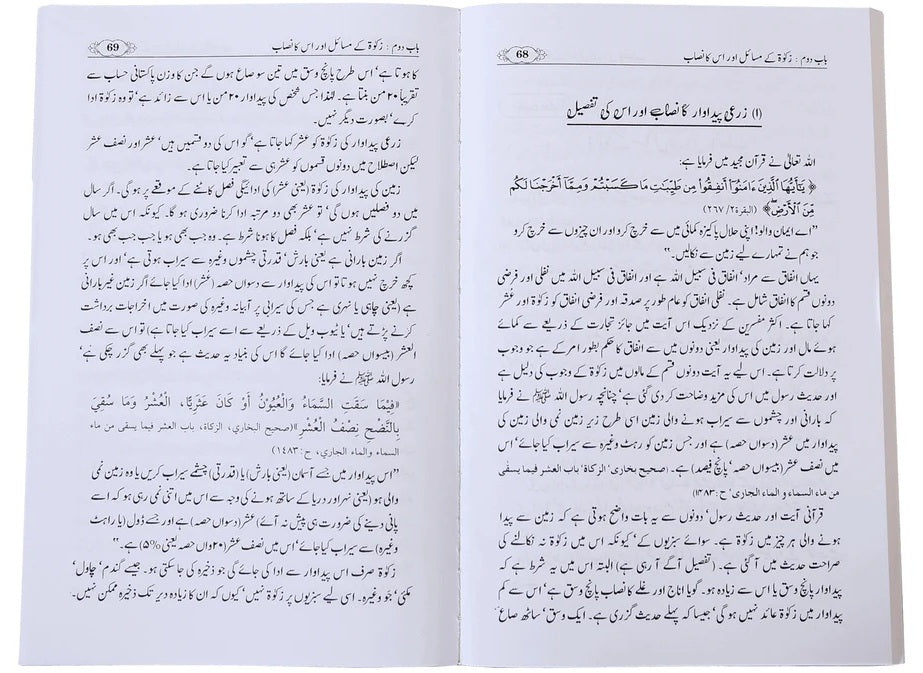 68
باب دوم : زکوٰۃ کے مسائل اور اس کا نصاب
(ا) زرعی پیداوار کا نصاب اور اس کی تفصیل
اللہ تعالیٰ نے قرآن مجید میں فرمایا ہے:
﴿ يَٰٓأَيُّهَا ٱلَّذِينَ ءَامَنُوٓا۟ أَنفِقُوا۟ مِن طَيِّبَٰتِ مَا كَسَبْتُمْ وَمِمَّآ أَخْرَجْنَا لَكُم
مِّنَ ٱلْأَرْضِ ۖ﴾ (البقرة٢/ ٢٦٧)
”اے ایمان والو! اپنی حلال پاکیزہ کمائی میں سے خرچ کرو اور ان چیزوں سے خرچ کرو
جو ہم نے تمہارے لیے زمین سے نکالیں۔“
یہاں انفاق سے مراد‘ انفاق فی سبیل اللہ ہے اور انفاق فی سبیل اللہ میں نفلی اور فرضی
دونوں قسم کا انفاق شامل ہے۔ نفلی انفاق کو عام طور پر صدقہ اور فرضی انفاق کو زکوٰۃ اور عشر
کہا جاتا ہے۔ اکثر مفسرین کے نزدیک اس آیت میں جائز تجارت کے ذریعے سے کمائے
ہوئے مال اور زمین کی پیداوار یعنی دونوں میں سے انفاق کا حکم بطور امر کے ہے جو وجوب
پر دلالت کرتا ہے۔ اس لیے یہ آیت دونوں قسم کے مالوں میں زکوٰۃ کے وجوب کی دلیل ہے
اور حدیث رسول میں اس کی مزید وضاحت کر دی گئی ہے‘ چنانچہ رسول اللہ ﷺ نے فرمایا
کہ بارانی اور چشموں سے سیراب ہونے والی زمین اسی طرح زیر زمین نمی والی زمین کی
پیداوار میں عشر (دسواں حصہ) ہے اور جس زمین کو رہٹ وغیرہ سے سیراب کیا جائے‘ اس
میں نصف عشر (بیسواں حصہ‘ پانچ فیصد) ہے۔ (صحیح بخاری‘ الزکاة‘ باب العشر فیما یسقی
من ماء السماء و الماء الجاری‘ ح:۱۴۸۳)
قرآنی آیت اور حدیث رسول‘ دونوں سے یہ بات واضح ہوتی ہے کہ زمین سے پیدا
ہونے والی ہر چیز میں زکوٰۃ ہے۔ سوائے سبزیوں کے‘ کیونکہ اس میں زکوٰۃ نہ نکالنے کی
صراحت حدیث میں آ گئی ہے۔ (تفصیل آگے آ رہی ہے) البتہ اس میں یہ شرط ہے کہ
پیداوار پانچ وسق یا اس سے زیادہ ہو۔ گویا اناج اور غلے کا نصاب پانچ وسق ہے‘ اس سے کم
پیداوار میں زکوٰۃ عائد نہیں ہوگی‘ جیسا کہ پہلے حدیث گزری ہے۔ ایک وسق‘ ساٹھ صاع
69
باب دوم : زکوٰۃ کے مسائل اور اس کا نصاب
کا ہوتا ہے‘ اس طرح پانچ وسق میں تین سو صاع ہوں گے جن کا وزن پاکستانی حساب سے
تقریباً ۲۰ من بنتا ہے۔ لہٰذا جس شخص کی پیداوار ۲۰ من یا اس سے زائد ہے‘ تو وہ زکوٰۃ ادا
کرے‘ بصورت دیگر نہیں۔
زرعی پیداوار کی زکوٰۃ کو عشر کہا جاتا ہے‘ گو اس کی دو قسمیں ہیں‘ عشر اور نصف عشر
لیکن اصطلاح میں دونوں قسموں کو عشر ہی سے تعبیر کیا جاتا ہے۔
زمین کی پیداوار کی زکوٰۃ (یعنی عشر) کی ادائیگی فصل کاٹنے کے موقعے پر ہو گی۔ اگر سال
میں دو فصلیں ہوں گی‘ تو عشر بھی دو مرتبہ ادا کرنا ضروری ہو گا۔ کیونکہ اس میں سال
گزرنے کی شرط نہیں ہے‘ بلکہ فصل کا ہونا شرط ہے۔ وہ جب بھی ہو یا جب جب بھی ہو۔
اگر زمین بارانی ہے یعنی بارش‘ قدرتی چشموں وغیرہ سے سیراب ہوتی ہے‘ اور اس پر
کچھ خرچ نہیں ہوتا تو اس کی پیداوار سے دسواں حصہ (عُشر) ادا کیا جائے اگر زمین غیر بارانی
ہے (یعنی چاہی یا نہری ہے جس کی سیرابی پر آبیانہ وغیرہ کی صورت میں اخراجات برداشت
کرنے پڑتے ہیں‘ یا ٹیوب ویل کے ذریعے سے اسے سیراب کیا جاتا ہے) تو اس سے نصف
العشر (بیسواں حصہ) ادا کیا جائے گا اس کی بنیاد یہ حدیث ہے جو پہلے بھی گزر چکی ہے‘
رسول اللہ ﷺ نے فرمایا:
«فِيمَا سَقَتِ السَّمَاءُ وَالْعُيُونُ أَوْ كَانَ عَثَرِيًّا، الْعُشْرُ وَمَا سُقِيَ
بِالنَّضْحِ نِصْفُ الْعُشْرِ»(صحيح البخاري، الزكاة، باب العشر فيما يسقي من ماء
السماء والماء الجاري، ح:١٤٨٣)
”اس پیداوار میں جسے آسمان (یعنی بارش) یا (قدرتی) چشمے سیراب کریں یا وہ زمین نمی
والی ہو (یعنی نہر اور دریا کے ساتھ ہونے کی وجہ سے اس میں اتنی نمی رہتی ہو کہ اسے
پانی دینے کی ضرورت ہی پیش نہ آئے) عشر (دسواں حصہ) ہے اور جسے ڈول (یا راہٹ
وغیرہ) سے سیراب کیا جائے‘ اس میں نصف عشر (۲۰واں حصہ یعنی ۵%) ہے۔“
زکوٰۃ صرف اس پیداوار سے ادا کی جائے گی جو ذخیرہ کی جا سکتی ہو۔ جیسے گندم‘ چاول‘
مکئی‘ جَو وغیرہ۔ اسی لیے سبزیوں پر زکوٰۃ نہیں‘ کیوں کہ ان کا زیادہ دیر تک ذخیرہ ممکن نہیں۔